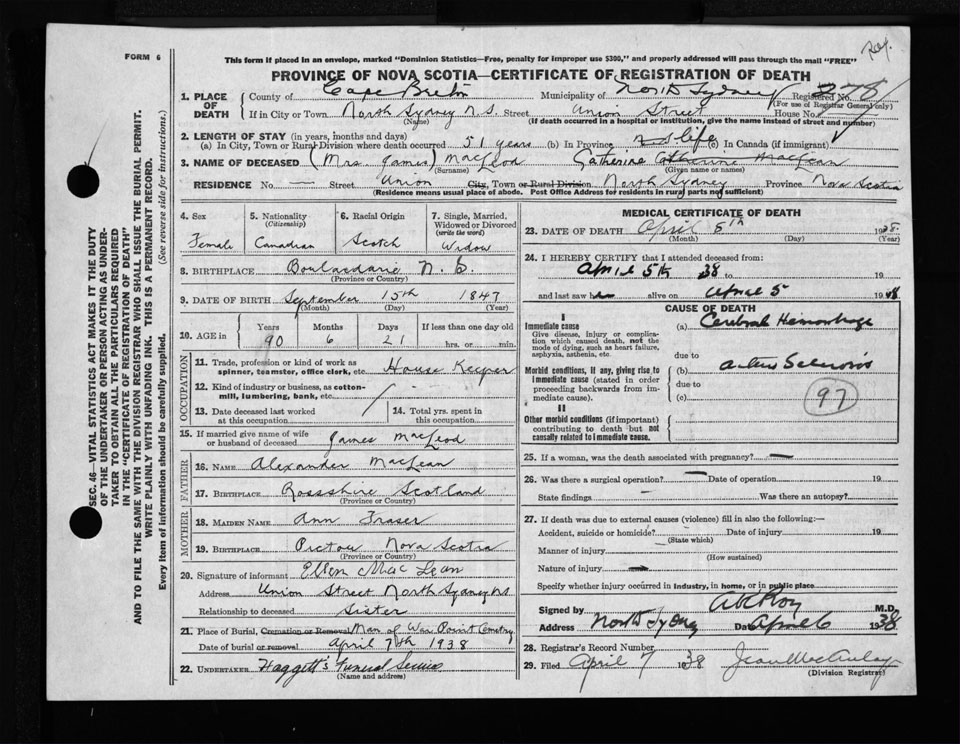 Rex.
FORM 6
This form if placed in an envelope, marked "Dominion Statistics—Free, penalty for improper use $300," and properly addressed will pass through the mail "FREE"
PROVINCE OF NOVA SCOTIA—CERTIFICATE OF REGISTRATION OF DEATH
1. PLACE OF DEATH
County of Cape Breton Municipality of North Sydney Registered No. 278
(For use of Registrar General only)
If in City or Town North Sydney N.S. Street Union Street House No.
(Name) (If death occurred in a hospital or institution, give the name instead of street and number)
2. LENGTH OF STAY (in years, months and days)
(a) In City, Town or Rural Division where death occurred 51 years (b) In Province life (c) In Canada (if immigrant)
3. NAME OF DECEASED (Mrs. James) MacLeod Catherine Catherine MacLean
(Surname) (Given name or names)
RESIDENCE No. — Street Union City, Town or Rural Division North Sydney Province Nova Scotia
(Residence means usual place of abode. Post Office Address for residents in rural parts not sufficient)
4. Sex Female
5. Nationality (Citizenship) Canadian
6. Racial Origin Scotch
7. Single, Married, Widowed or Divorced (write the word) Widow
8. BIRTHPLACE Boulardarie N.S.
(Province or Country)
9. DATE OF BIRTH September 15th 1847
(Month) (Day) (Year)
10. AGE in Years 90 Months 6 Days 21 If less than one day old hrs. or min.
OCCUPATION
11. Trade, profession or kind of work as spinner, teamster, office clerk, etc. House Keeper
12. Kind of industry or business, as cotton-mill, lumbering, bank, etc.
13. Date deceased last worked at this occupation
14. Total yrs. spent in this occupation
15. If married give name of wife or husband of deceased James MacLeod
FATHER
16. NAME Alexander MacLean
17. BIRTHPLACE Rossshire Scotland
(Province or Country)
MOTHER
18. MAIDEN NAME Ann Fraser
19. BIRTHPLACE Pictou Nova Scotia
(Province or Country)
20. Signature of informant Ellen MacLean
Address Union Street North Sydney NS
Relationship to deceased Sister
21. Place of Burial, Cremation or Removal Man of War Point Cemetry
Date of burial or removal April 7th 1938
22. UNDERTAKER Haggett's Funeral Service
(Name and address)
MEDICAL CERTIFICATE OF DEATH
23. DATE OF DEATH April 5th 1938
(Month) (Day) (Year)
24. I HEREBY CERTIFY that I attended deceased from:
April 5th 38 to 19
and last saw h alive on April 5 1938
CAUSE OF DEATH
I
Immediate cause
Give disease, injury or complication which caused death, not the mode of dying, such as heart failure, asphyxia, asthenia, etc.
(a) Cerebral Hemorrhage
due to
Morbid conditions, if any, giving rise to immediate cause (stated in order proceeding backwards from immediate cause).
(b) arterio Sclerosis
due to
(c)
97
II
Other morbid conditions (if important) contributing to death but not causally related to immediate cause.
25. If a woman, was the death associated with pregnancy? —
26. Was there a surgical operation? — Date of operation 19
State findings — Was there an autopsy?
27. If death was due to external causes (violence) fill in also the following:—
Accident, suicide or homicide? Date of injury 19
(State which)
Manner of injury
(How sustained)
Nature of injury —
Specify whether injury occurred in industry, in home, or in public place
Signed by M.D.
Address North Sydney Date April 6 1938
28. Registrar's Record Number
29. Filed April 7 1938 Jean MacAulay
(Division Registrar)
SEC. 46—VITAL STATISTICS ACT MAKES IT THE DUTY
OF THE UNDERTAKER OR PERSON ACTING AS UNDER-
TAKER TO OBTAIN ALL THE PARTICULARS REQUIRED
IN THE "CERTIFICATE OF REGISTRATION OF DEATH"
AND TO FILE THE SAME WITH THE DIVISION REGISTRAR WHO SHALL ISSUE THE BURIAL PERMIT.
WRITE PLAINLY WITH UNFADING INK. THIS IS A PERMANENT RECORD.
Every item of information should be carefully supplied. (See reverse side for instructions.)